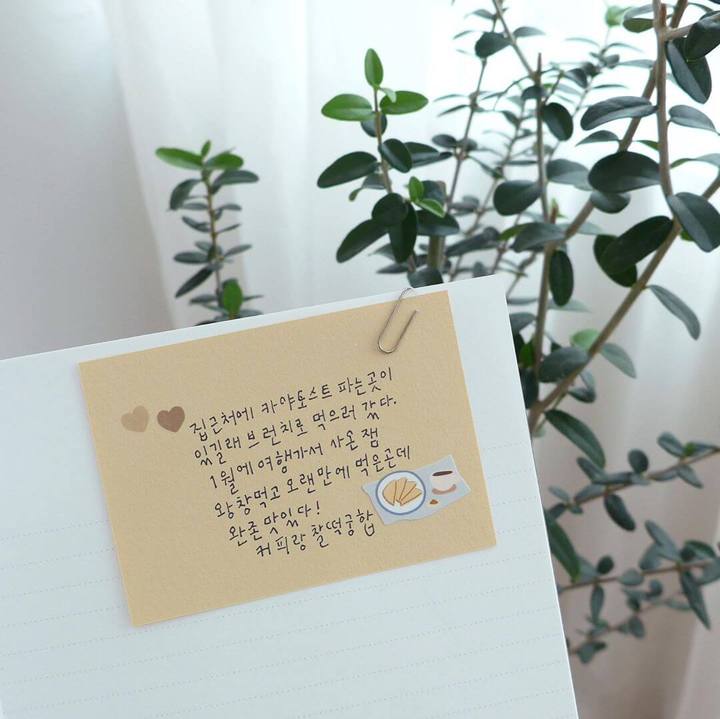 집근처에 카야토스트 파는곳이
있길래 브런치로 먹으러 갔다.
1월에 여행가서 사온 잼
왕창먹고 오랜만에 먹은건데
완존 맛있다!
커피랑 찰떡궁합